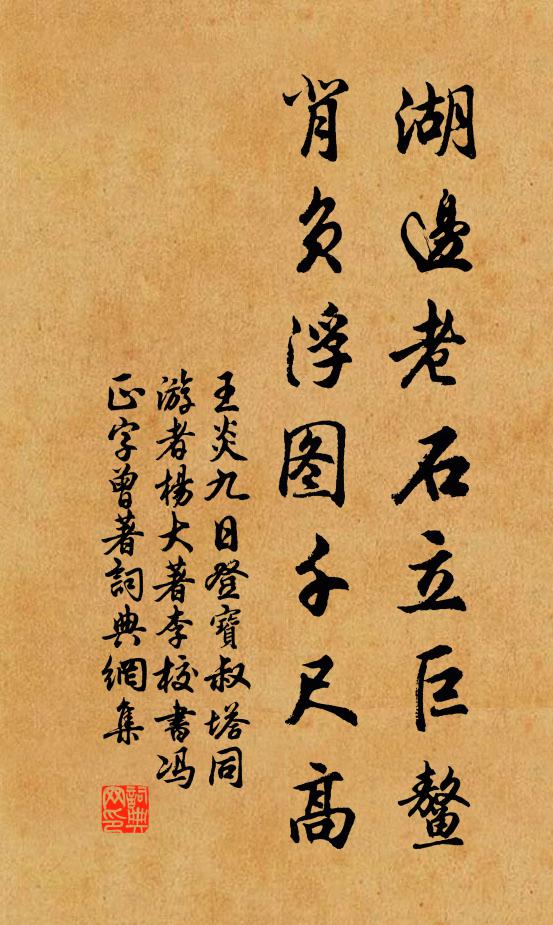 湖邊老石立巨鼇
背負浮图千尺高
王炎九日登寶叔塔同
游者楊大著李校書馮
正字曾著詞典網集